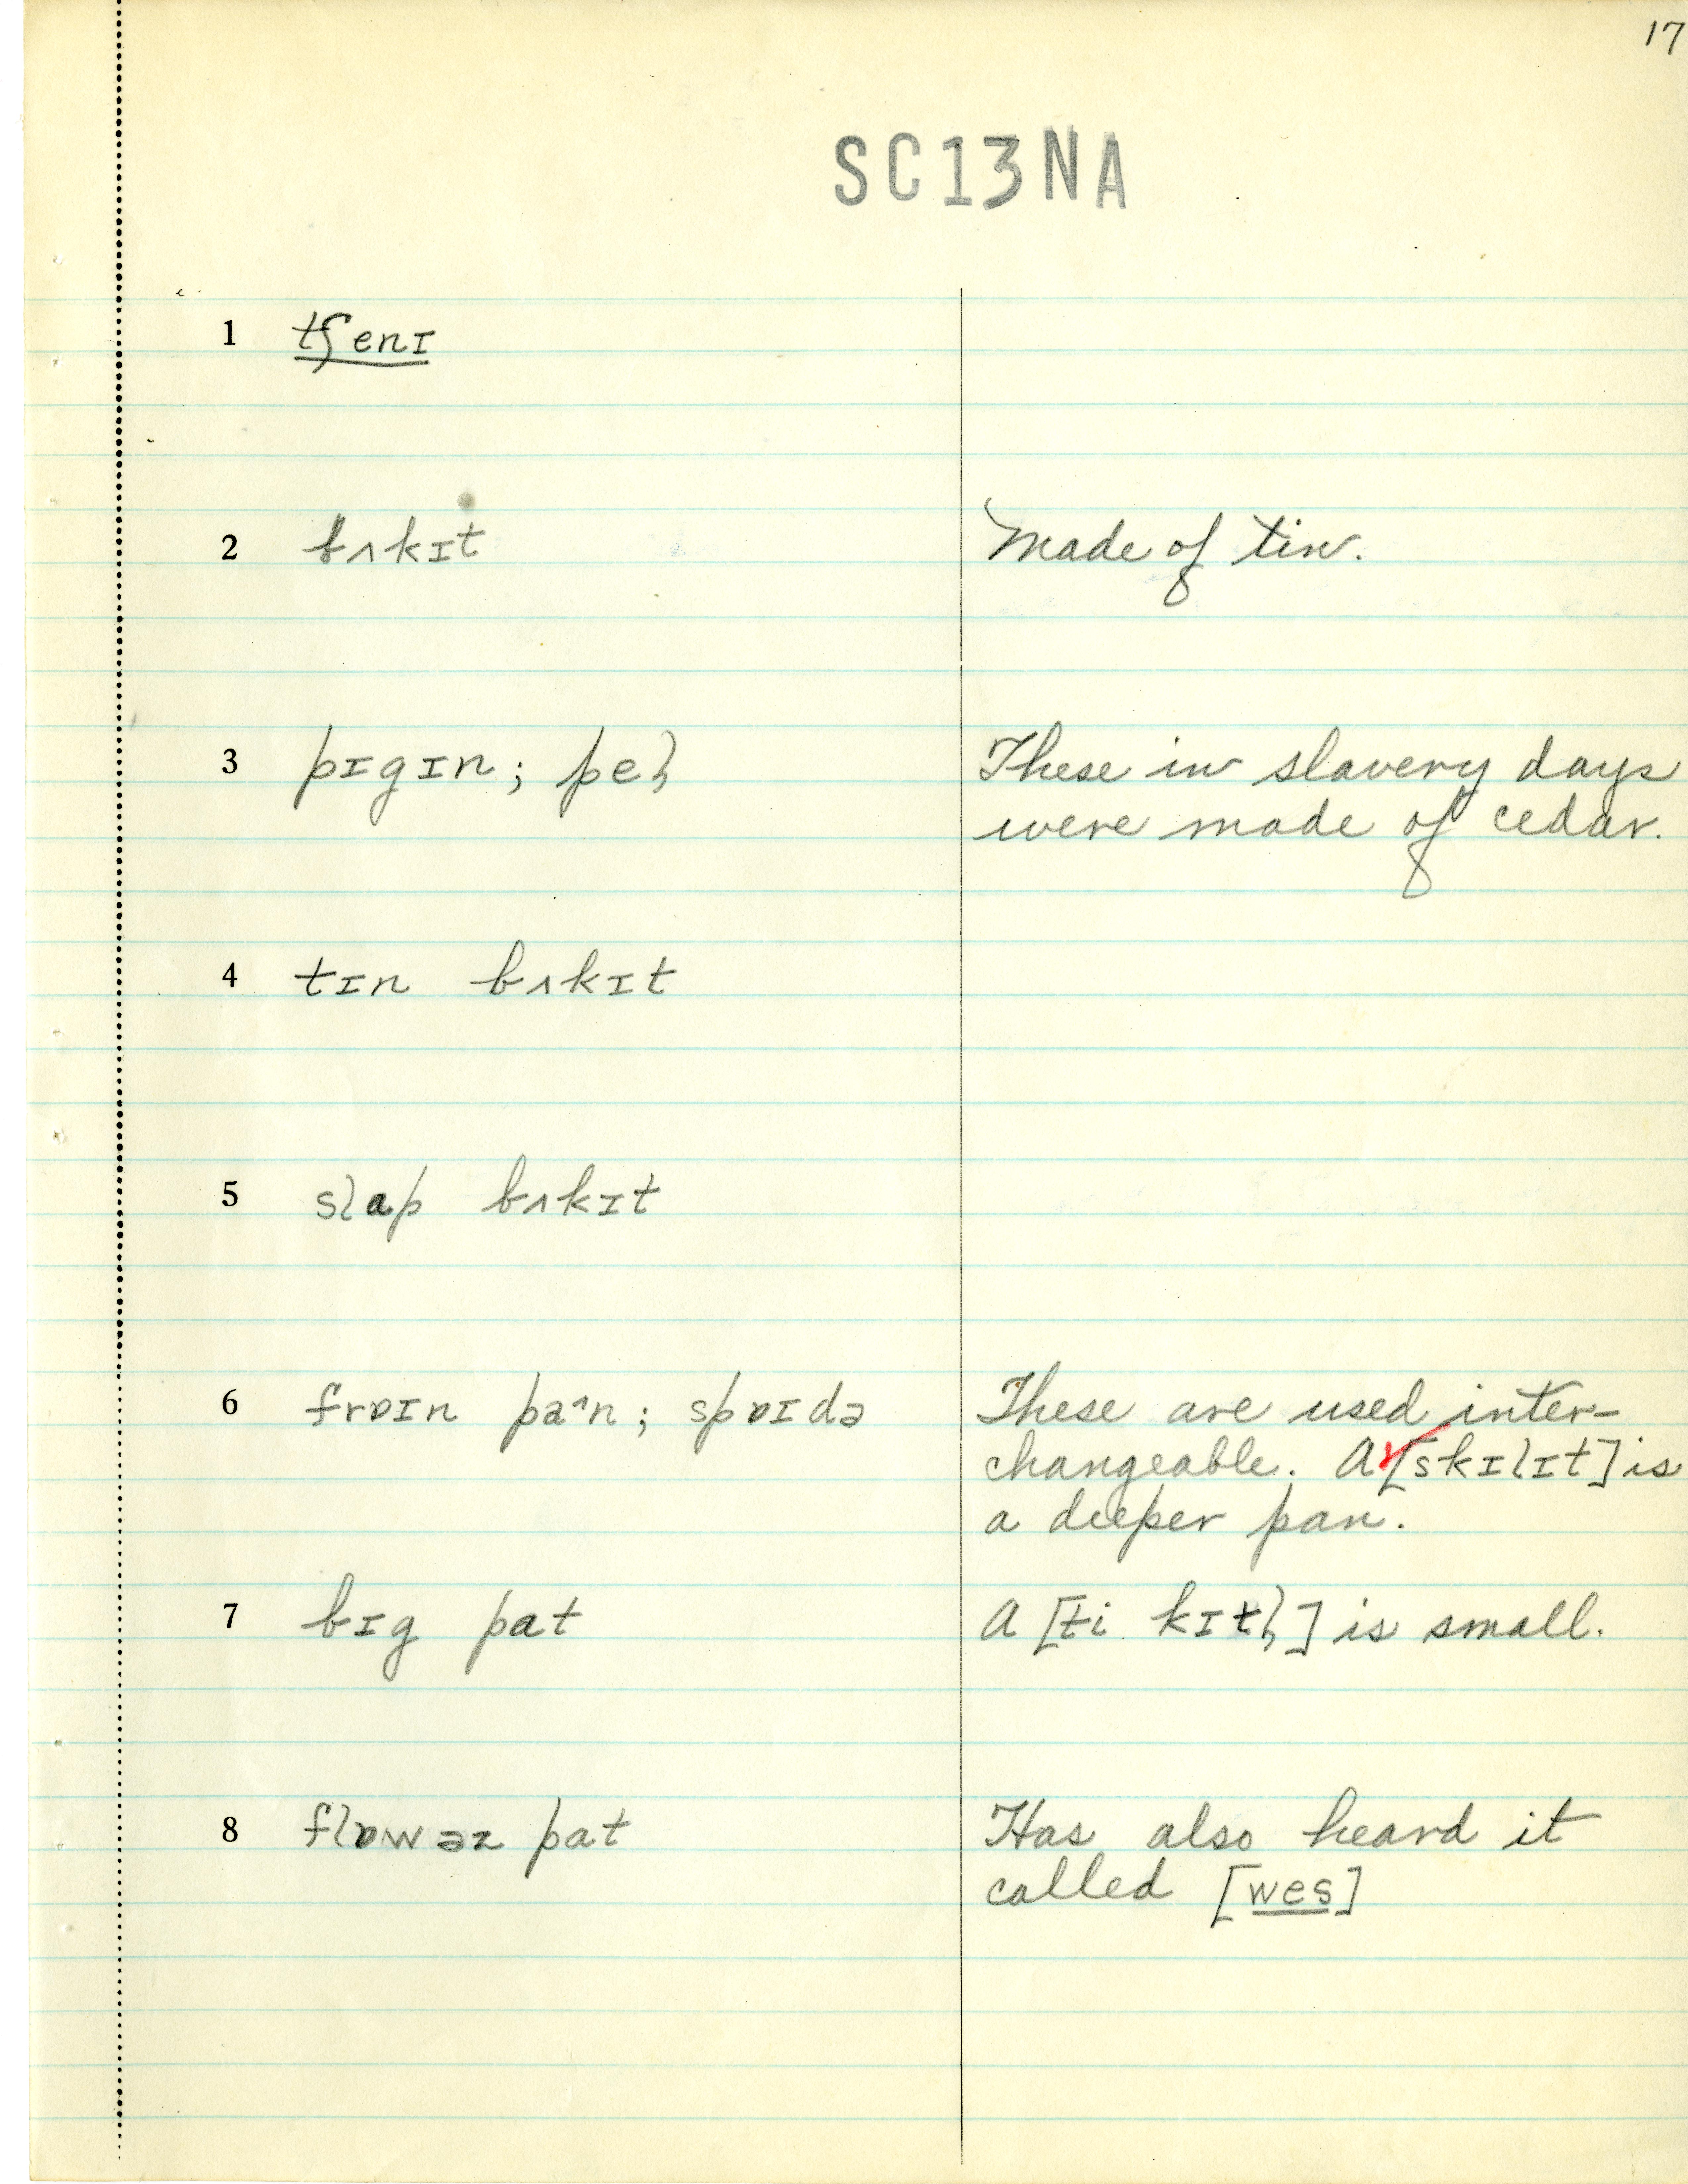 17
SC13NA
1 tʃenɪ
2 bʌkɪt Made of tin.
3 pɪgɪn; peɫ These in slavery days
were made of cedar.
4 tɪn bʌkɪt
5 slap bʌkɪt
6 frɒɪn paˆn; spɒɪdə These are used inter-
changeable. A [skɪlɪt] is
a deeper pan.
7 bɪg pat A [ti kɪtɫ] is small.
8 flɒwəz pat Has also heard it
called [wes]